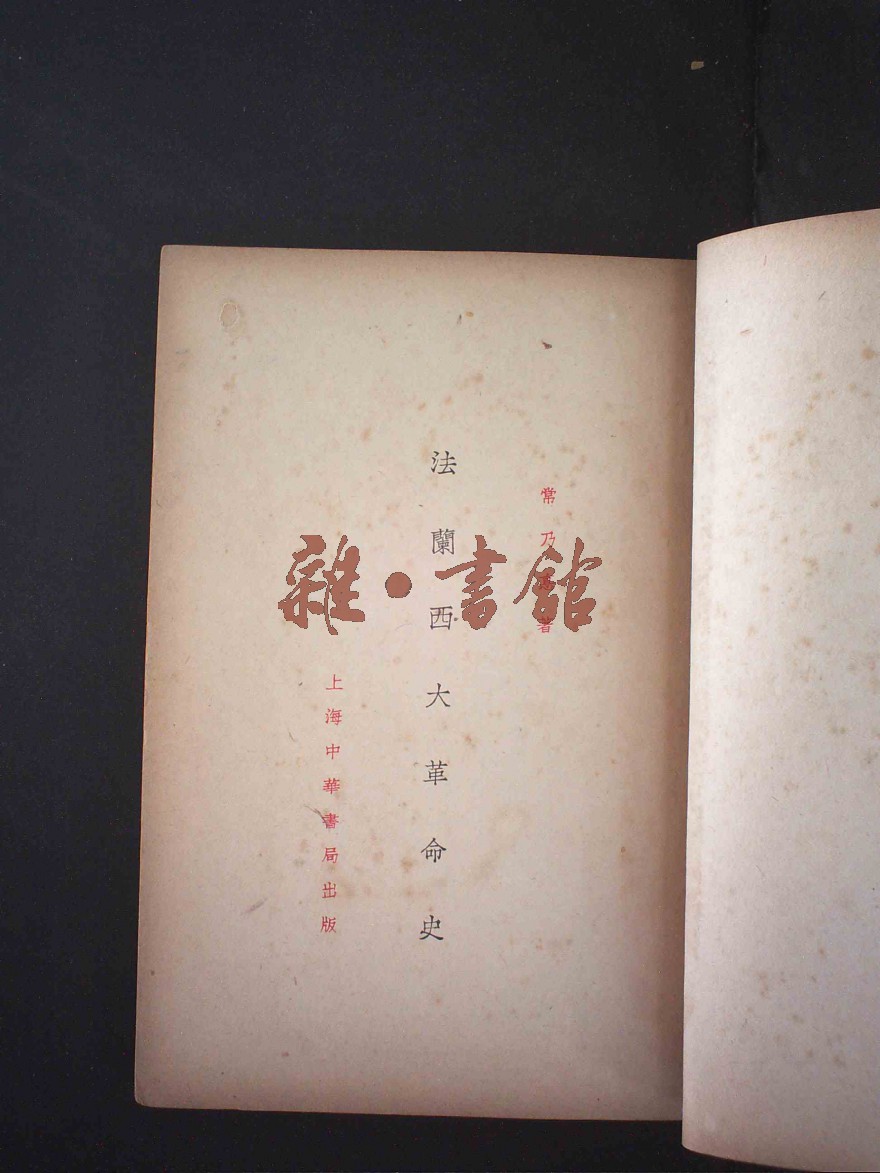 常乃
著
法蘭西大革命史
上海中華書局出版
雜·書館